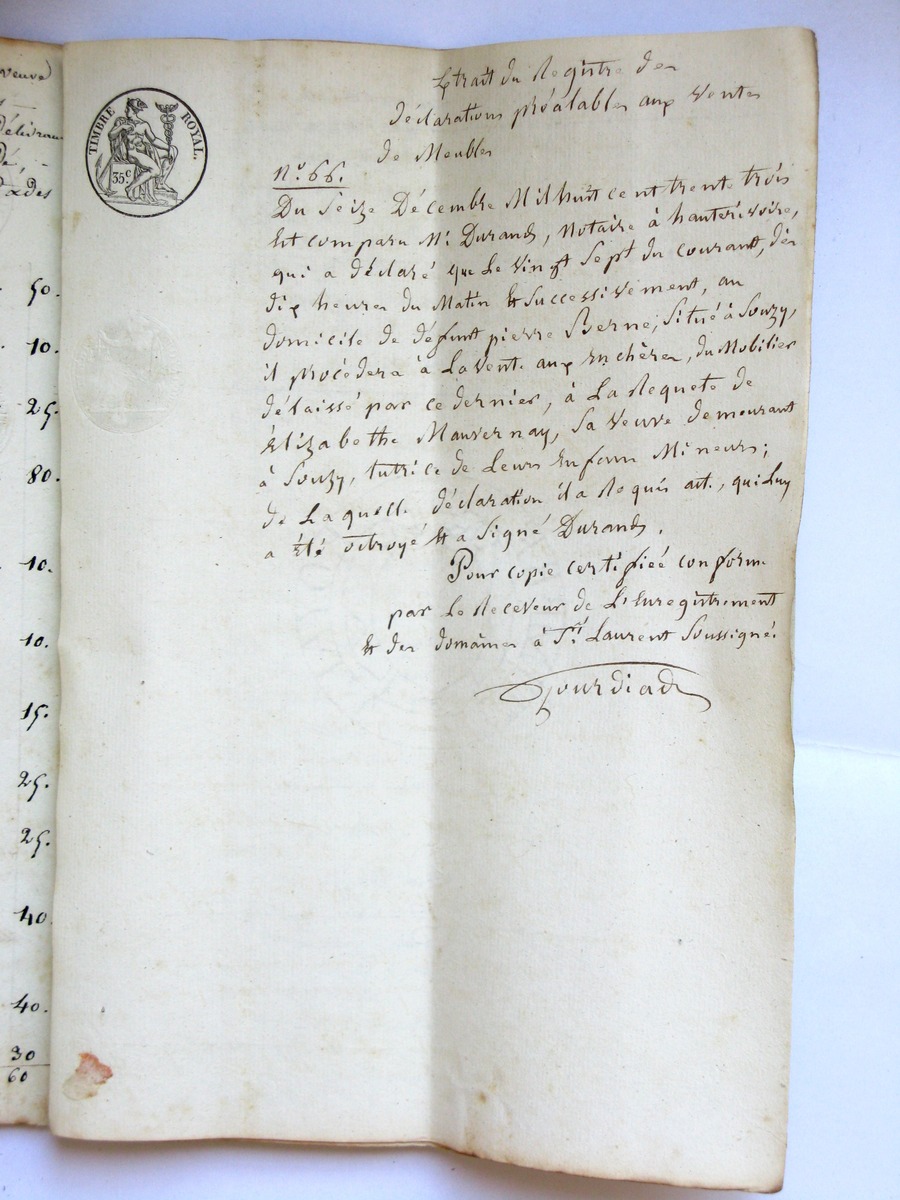 veuve
délivran
dé,
50.
10.
25.
80.
10.
10.
15.
25.
25.
40.
40.
30
60
TIMBRE ROYAL.
35c.
Extrait du Registre des
déclarations préalables aux Ventes
de Meubles
N.o 66.
Du Seize Décembre Mil huit cent trente trois
Est comparu Me Durand, Notaire à hauterivoire,
qui a déclaré que Le vingt Sept du courant, dès
dix heures du Matin & Successivement, au
domicile de défunt pierre Berne, Situé à Souzy,
il procédera à La Vente aux Enchères, du Mobilier
délaissé par ce dernier, à La Requete de
Élizabethe Mauvernay, Sa Veuve demeurant
à Souzy, tutrice de Leurs Enfans Mineurs;
de Laquelle déclaration il a Requis acte, qui Luy
a été octroyé & a Signé Durand.
Pour copie certifiée conforme
par Le Receveur de L'Enregistrement
& des domaines à St. Laurent Soussigné.